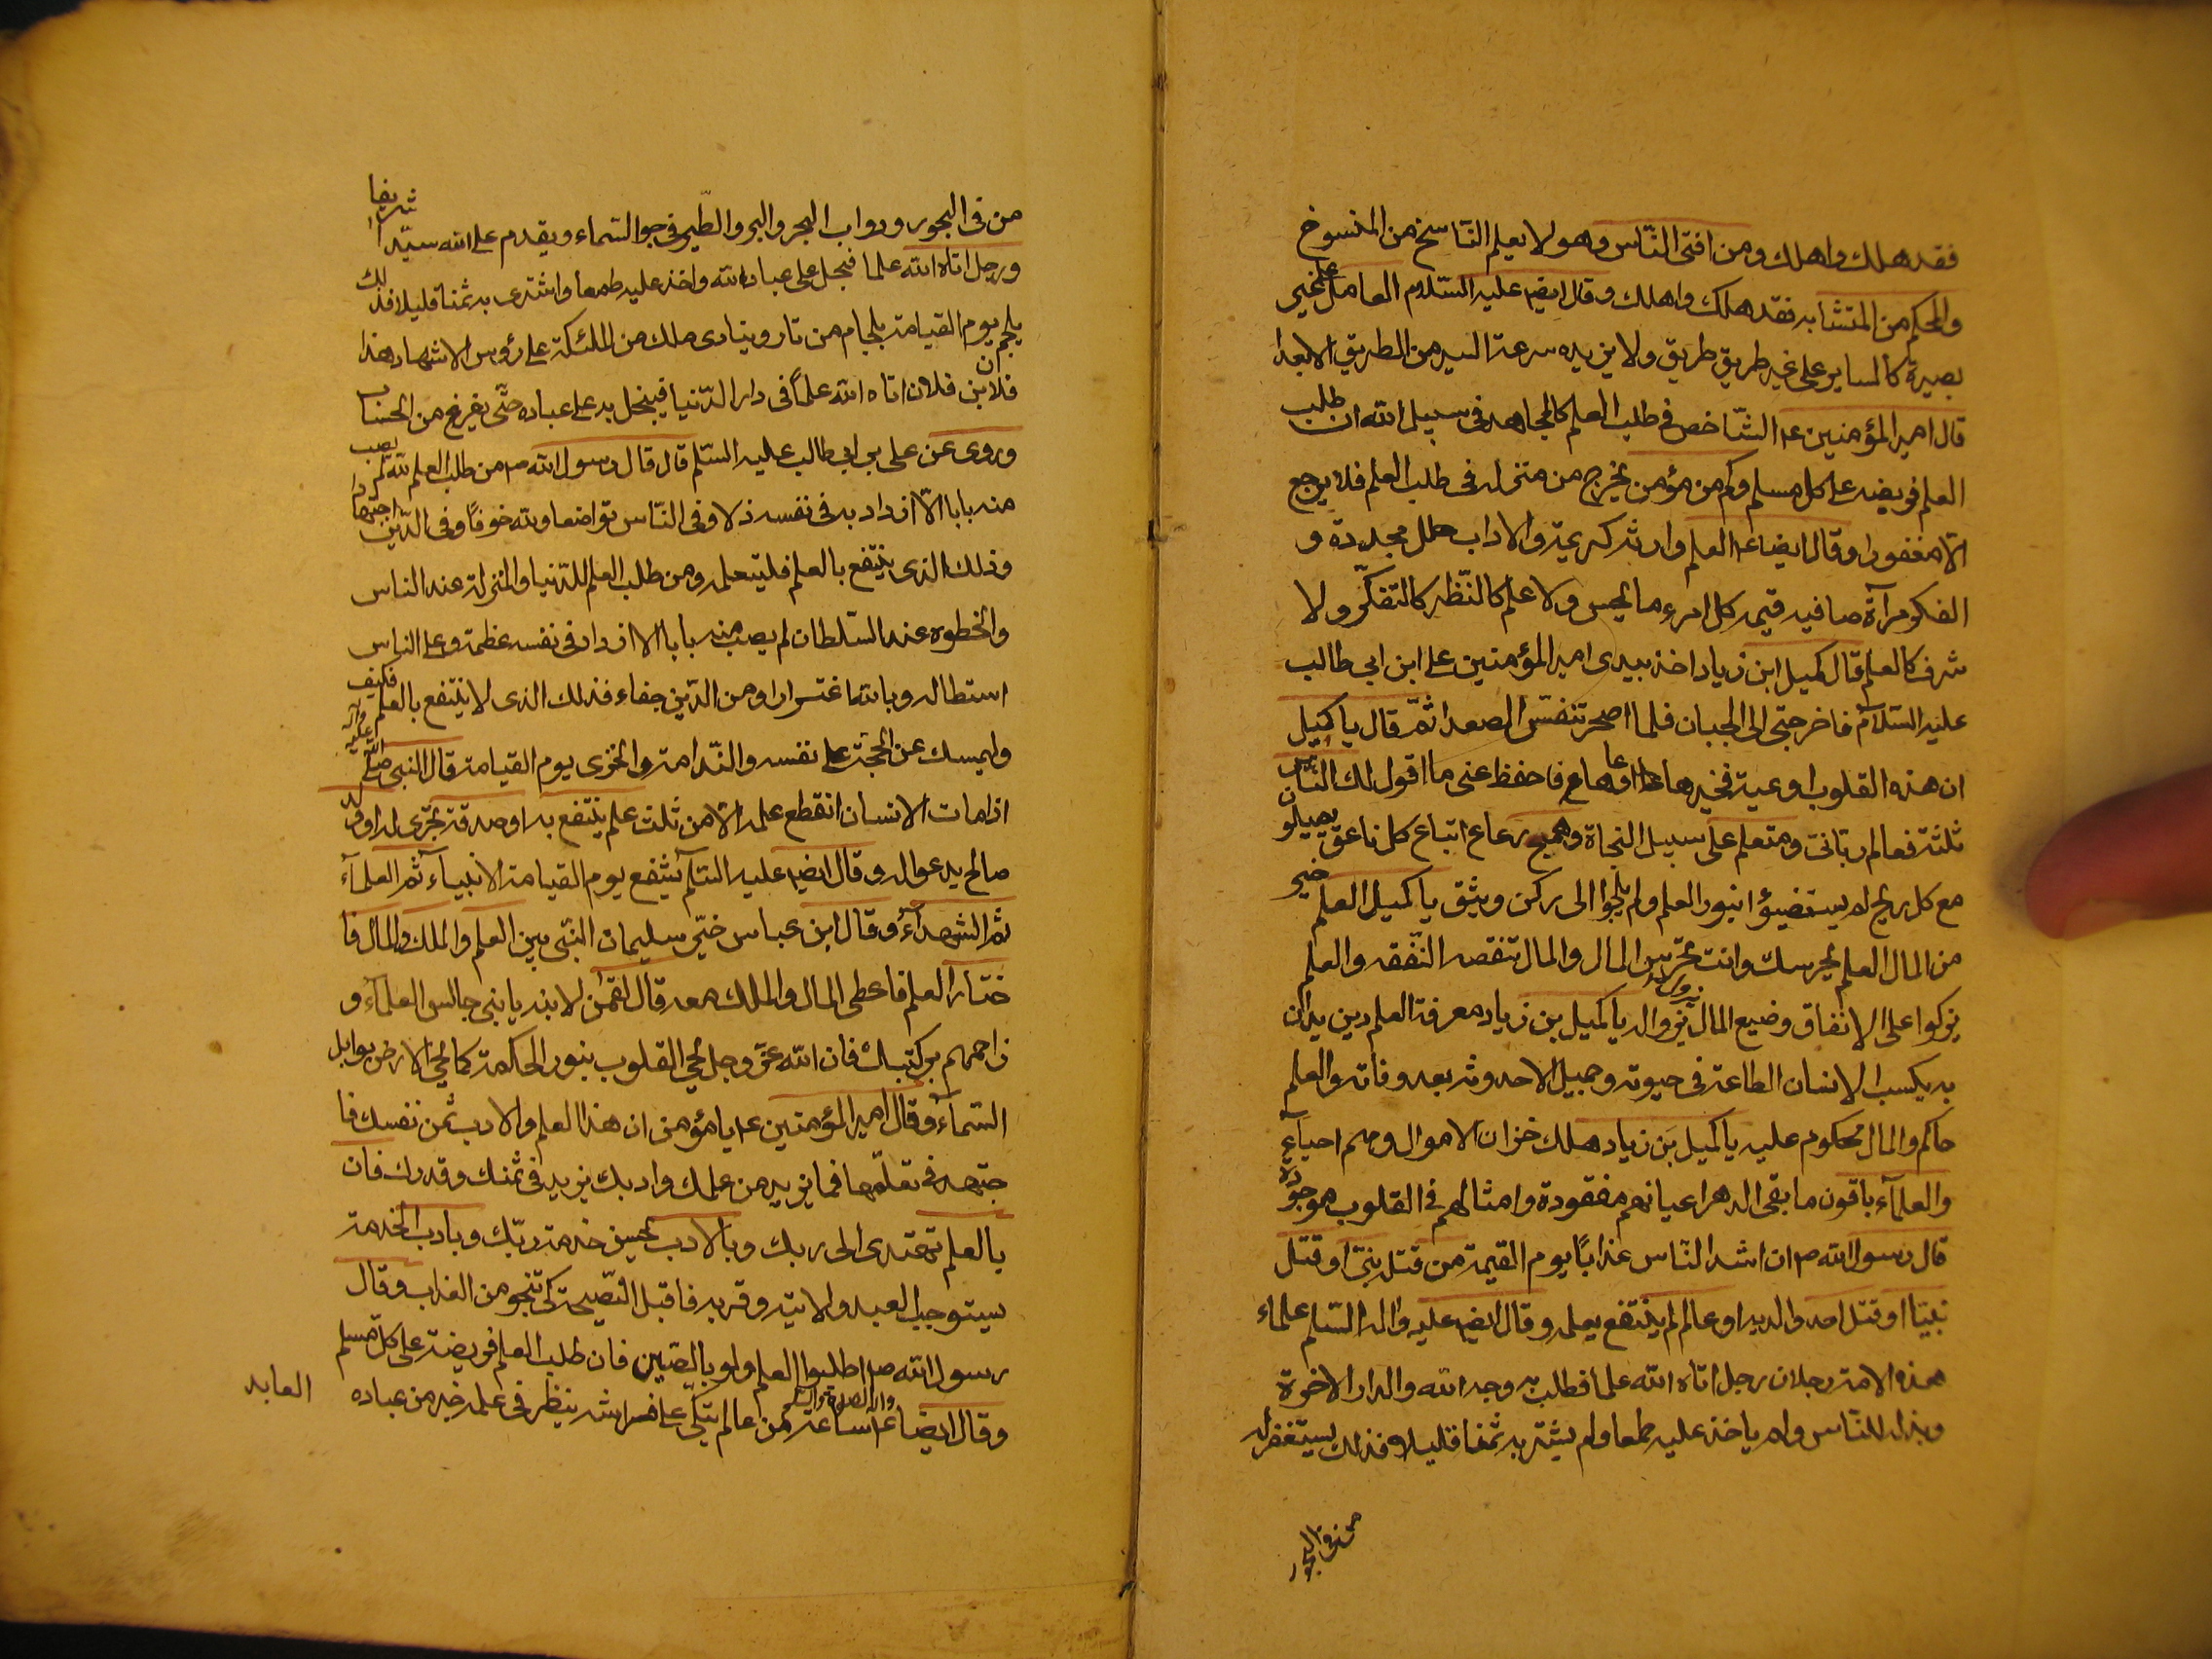 فقد هلك واهلك ومن افتى النّاس وهو لا يعلم النّاسخ من المنسوخ
والمحكم من المتشابه فقد هلك واهلك وقال ايض عليه السّلام العامل على غير
بصيرة كالساير على غير طريق طريق ولا يزيده سرعة السير من الطريق الا بعدا
قال امير المؤمنين ع الشّاخص فى طلب العلم كالمجاهد فى سبيل الله ان طلب
العلم فريضه على كل مسلم وكم من مؤمن يخرج من منزله فى طلب العلم فلا يرجع
الّا مغفورا وقال ايضا ع العلم وارثه كريمة والاداب حلل مجددة و
الفكر مرآة صافيه قيمه كل امرء ما يحسن ولا علم كالنّظر كالتفكّر ولا
شرف كالعلم قال كميل ابن زياد اخذ بيدى امير المؤمنين على ابن ابي طالب
عليه السّلام فاخرجنى الى الجبان فلما اصحر تنفسّ الصعدا ثمّ قال يا كميل
ان هذه القلوب اوعية فخيرها اوعاها فاحفظ عنى ما اقول لك الناس
ثلثة فعالم ربّانى ومتعلم على سبيل النجاة وهمج رعاع اتباع كل ناعق يميلون
مع كل ريح لم يستضيؤا بنور العلم ولم يلجوا الى ركن وثيق يا كميل العلم خير
من المال العلم يحرسك وانت تحرس المال والمال تنقصه النّفقه والعلم
يزكوا على الانفاق وضيع المال يزول بزواله يا كميل بن زياد معرفة العلم دين يدان
به يكسب الانسان الطاعة فى حيوته وجميل الاحدوثه بعد وفاته والعلم
حاكم والمال محكوم عليه يا كميل بن زياد هلك خزان الاموال وهم احياء
والعلمآء باقون ما بقى الدهر اعيانهم مفقودة وامثالهم فى القلوب موجودة
قال رسول الله ص ان اشد النّاس عذابًا يوم القيمة من قتله نبىّ او قتل
نبيّا او قتل احد والديه او عالم لم ينتفع بعلمه وقال ايض عليه واله السّلم علماء
هذه الامة رجلان رجل اتاه الله علما فطلب به وجه الله والدار الاخرة
وبذله للنّاس ولم ياخذ عليه طمعا ولم يشتر به ثمنا قليلا فذلك يستغفر له
من فى البحور
من فى البحور ودواب البحر والبر والطّير فى جو السّماء ويقدم على الله سيّدا شريفا
ورجل اتاه الله علما فبخل على عباد الله واخذ عليه طمعا واشترى به ثمنا قليلا فذلك
يلجم يوم القيامة بلجام من نار وينادى ملك من الملئكة على رؤوس الاشهاد هذا
فلان بن فلان اتاه الله علماً فى دار الدّنيا فيبخل به على عباده حتّى يفرغ من الحساب
وروى عن على بن ابى طالب عليه السّلم قال قال رسول الله ص من طلب العلم لله لم يصب
منه بابا الّا ازداد به فى نفسه ذلا وفى النّاس تواضعا ولله خوفاً وفى الدّين اجتهادا
وذلك الذى ينتفع بالعلم فليتعلمه ومن طلب العلم للدّنيا والمنزلة عند الناس
والخطوه عند السّلطان لم يصب منه بابا الا ازداد فى نفسه عظمة وعلى الناس
استطاله وبالله اغترارا ومن الدّين جفاء فذلك الذى لا ينتفع بالعلم فكيف
وليمسك عن الحجة على نفسه والنّدامة والخزى يوم القيامة قال النبى صلّى الله عليه وآله
اذا مات الانسان انقطع علمه الّا من ثلث علم ينتفع به او صدقة تجرى له او ولد
صالح يدعوا له وقال ايض عليه السّلم يشفع يوم القيامة الانبيآء ثمّ العلمآء
ثمّ الشهدآء وقال ابن عباس خيّر سليمان النّبى بين العلم والملك والمال فا
ختار العلم فاعطى المال والملك معه قال لقمن لابنه يا بنى جالس العلمآء و
زاحمهم بركبتيك فان الله عزّ وجل يحيى القلوب بنور الحكمة كما يحيى الارض بوابل
السّمآء وقال امير المؤمنين ع يا مؤمن ان هذا العلم والادب ثمن نفسك فا
جتهد فى تعلّمها فما يزيد من علمك وادبك يزيد فى ثمنك وقدرك فان
بالعلم تهتدى الى ربك وبالادب تحسن خدمة ربّك وبادب الخدمة
يستوجب العبد ولايته وقربه فاقبل النّصيحة كى تنجو من العذاب وقال
رسول الله ص اطلبوا العلم ولو بالصّين فان طلب العلم فريضة على كل مسلم
وقال ايضا ع ساعة من عالم يتكى على فراشه ينظر فى علمه خير من عباده
العابد